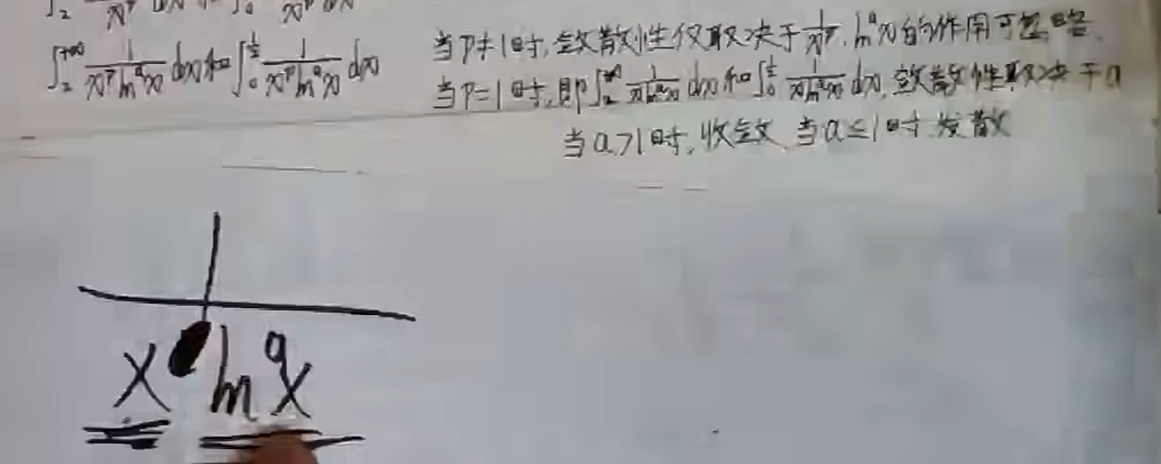 ∫₂^{+∞} 1/(x^p ln^a x) dx 和 ∫₀^{1/2} 1/(x^p ln^a x) dx
当P≠1时,敛散性仅取决于 1/x^p, ln^a x的作用可忽略.
当P=1时,即∫₂^{+∞} 1/(x ln^a x) dx 和 ∫₀^{1/2} 1/(x ln^a x) dx, 敛散性取决于a
当a>1时,收敛、当a≤1时 发散
x ln^a x